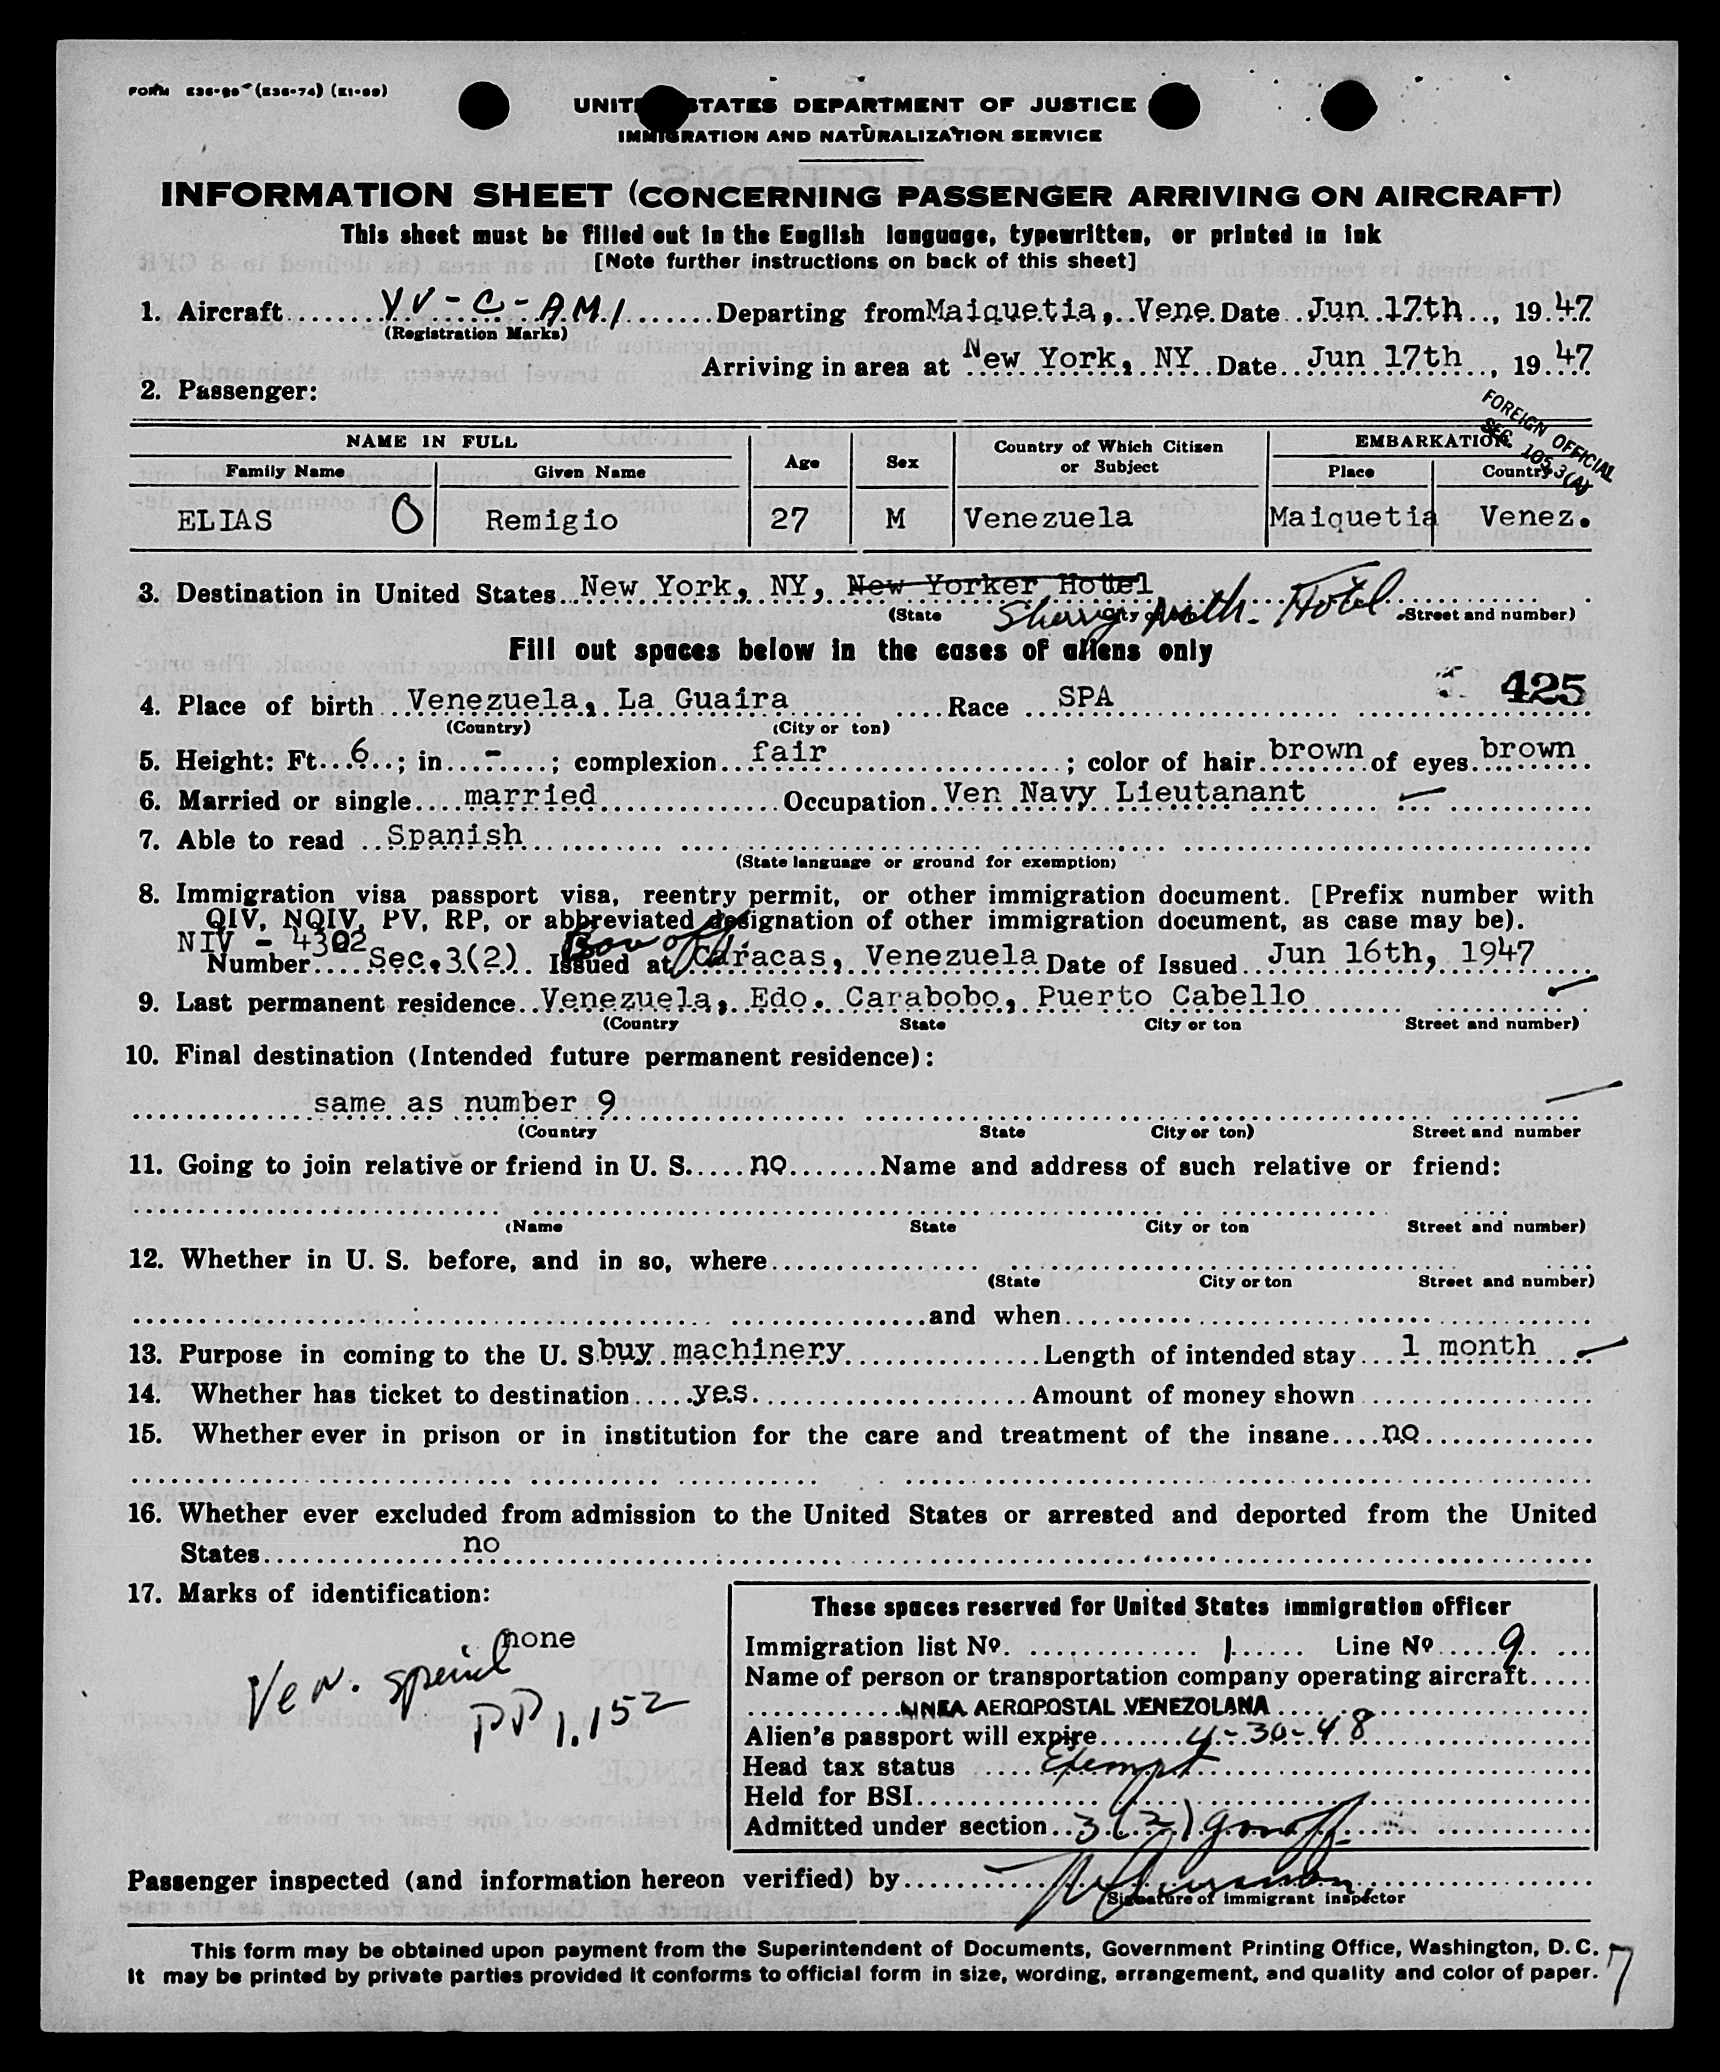 FORM
UNITED STATES DEPARTMENT OF JUSTICE
IMMIGRATION AND NATURALIZATION SERVICE
INFORMATION SHEET (CONCERNING PASSENGER ARRIVING ON AIRCRAFT)
This sheet must be filled out in the English language, typewritten, or printed in ink
[Note further instructions on back of this sheet]
1. Aircraft YV-C-AM1 Departing from Maiquetia, Vene Date Jun 17th, 1947
(Registration Marks)
Arriving in area at New York, NY Date Jun 17th, 1947
2. Passenger:
FOREIGN OFFICIAL
SEC. 105.3(A)
NAME IN FULL Age Sex Country of Which Citizen or Subject EMBARKATION
Family Name Given Name Place Country
ELIAS O Remigio 27 M Venezuela Maiquetia Venez.
3. Destination in United States New York, NY, New Yorker Hottel
(State City or ton Street and number)
Sherry Neth. Hotel
Fill out spaces below in the cases of aliens only
425
4. Place of birth Venezuela, La Guaira Race SPA
(Country) (City or ton)
5. Height: Ft. 6; in. -; complexion fair; color of hair brown of eyes brown
6. Married or single married Occupation Ven Navy Lieutanant
7. Able to read Spanish
(State language or ground for exemption)
8. Immigration visa passport visa, reentry permit, or other immigration document. [Prefix number with
QIV, NQIV, PV, RP, or abbreviated designation of other immigration document, as case may be).
NIV - 4302
Number Sec. 3(2) Issued at Caracas, Venezuela Date of Issued Jun 16th, 1947
9. Last permanent residence Venezuela, Edo. Carabobo, Puerto Cabello
(Country State City or ton Street and number)
10. Final destination (Intended future permanent residence):
same as number 9
(Country State City or ton) Street and number
11. Going to join relative or friend in U. S. no Name and address of such relative or friend:
(Name State City or ton Street and number)
12. Whether in U. S. before, and in so, where
(State City or ton Street and number)
and when
13. Purpose in coming to the U. S buy machinery Length of intended stay 1 month
14. Whether has ticket to destination yes. Amount of money shown
15. Whether ever in prison or in institution for the care and treatment of the insane no
16. Whether ever excluded from admission to the United States or arrested and deported from the United
States no
17. Marks of identification:
none
Ven. special
PP 1,152
These spaces reserved for United States immigration officer
Immigration list No. 1 Line No 9
Name of person or transportation company operating aircraft
LINEA AEROPOSTAL VENEZOLANA
Alien's passport will expire 4-30-48
Head tax status Exempt
Held for BSI
Admitted under section 3(2)
Passenger inspected (and information hereon verified) by
Signature of immigrant inspector
This form may be obtained upon payment from the Superintendent of Documents, Government Printing Office, Washington, D. C.
It may be printed by private parties provided it conforms to official form in size, wording, arrangement, and quality and color of paper.
7